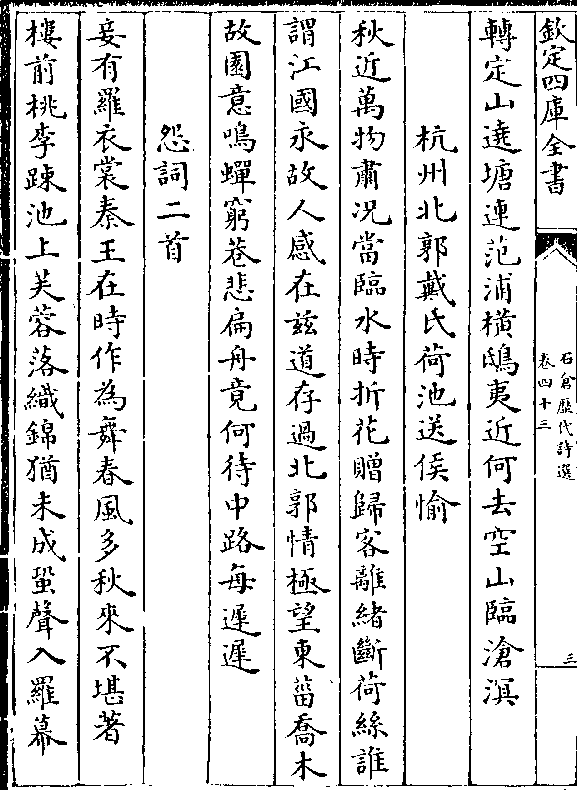 欽定四庫全書
石倉歷代詩選
卷四十三
三
轉定山遶塘連范浦橫鴟夷近何去空山臨滄溟
杭州北郭戴氏荷池送侯愉
秋近萬物肅况當臨水時折花贈歸客離緒斷荷絲誰
謂江國永故人感在兹道存過北郭情極望東菑喬木
故園意鳴蟬窮巷悲扁舟竟何待中路每遲遲
怨詞二首
妾有羅衣裳秦王在時作為舞春風多秋來不堪著
樓前桃李踈池上芙蓉落織錦猶未成蛩聲入羅幕